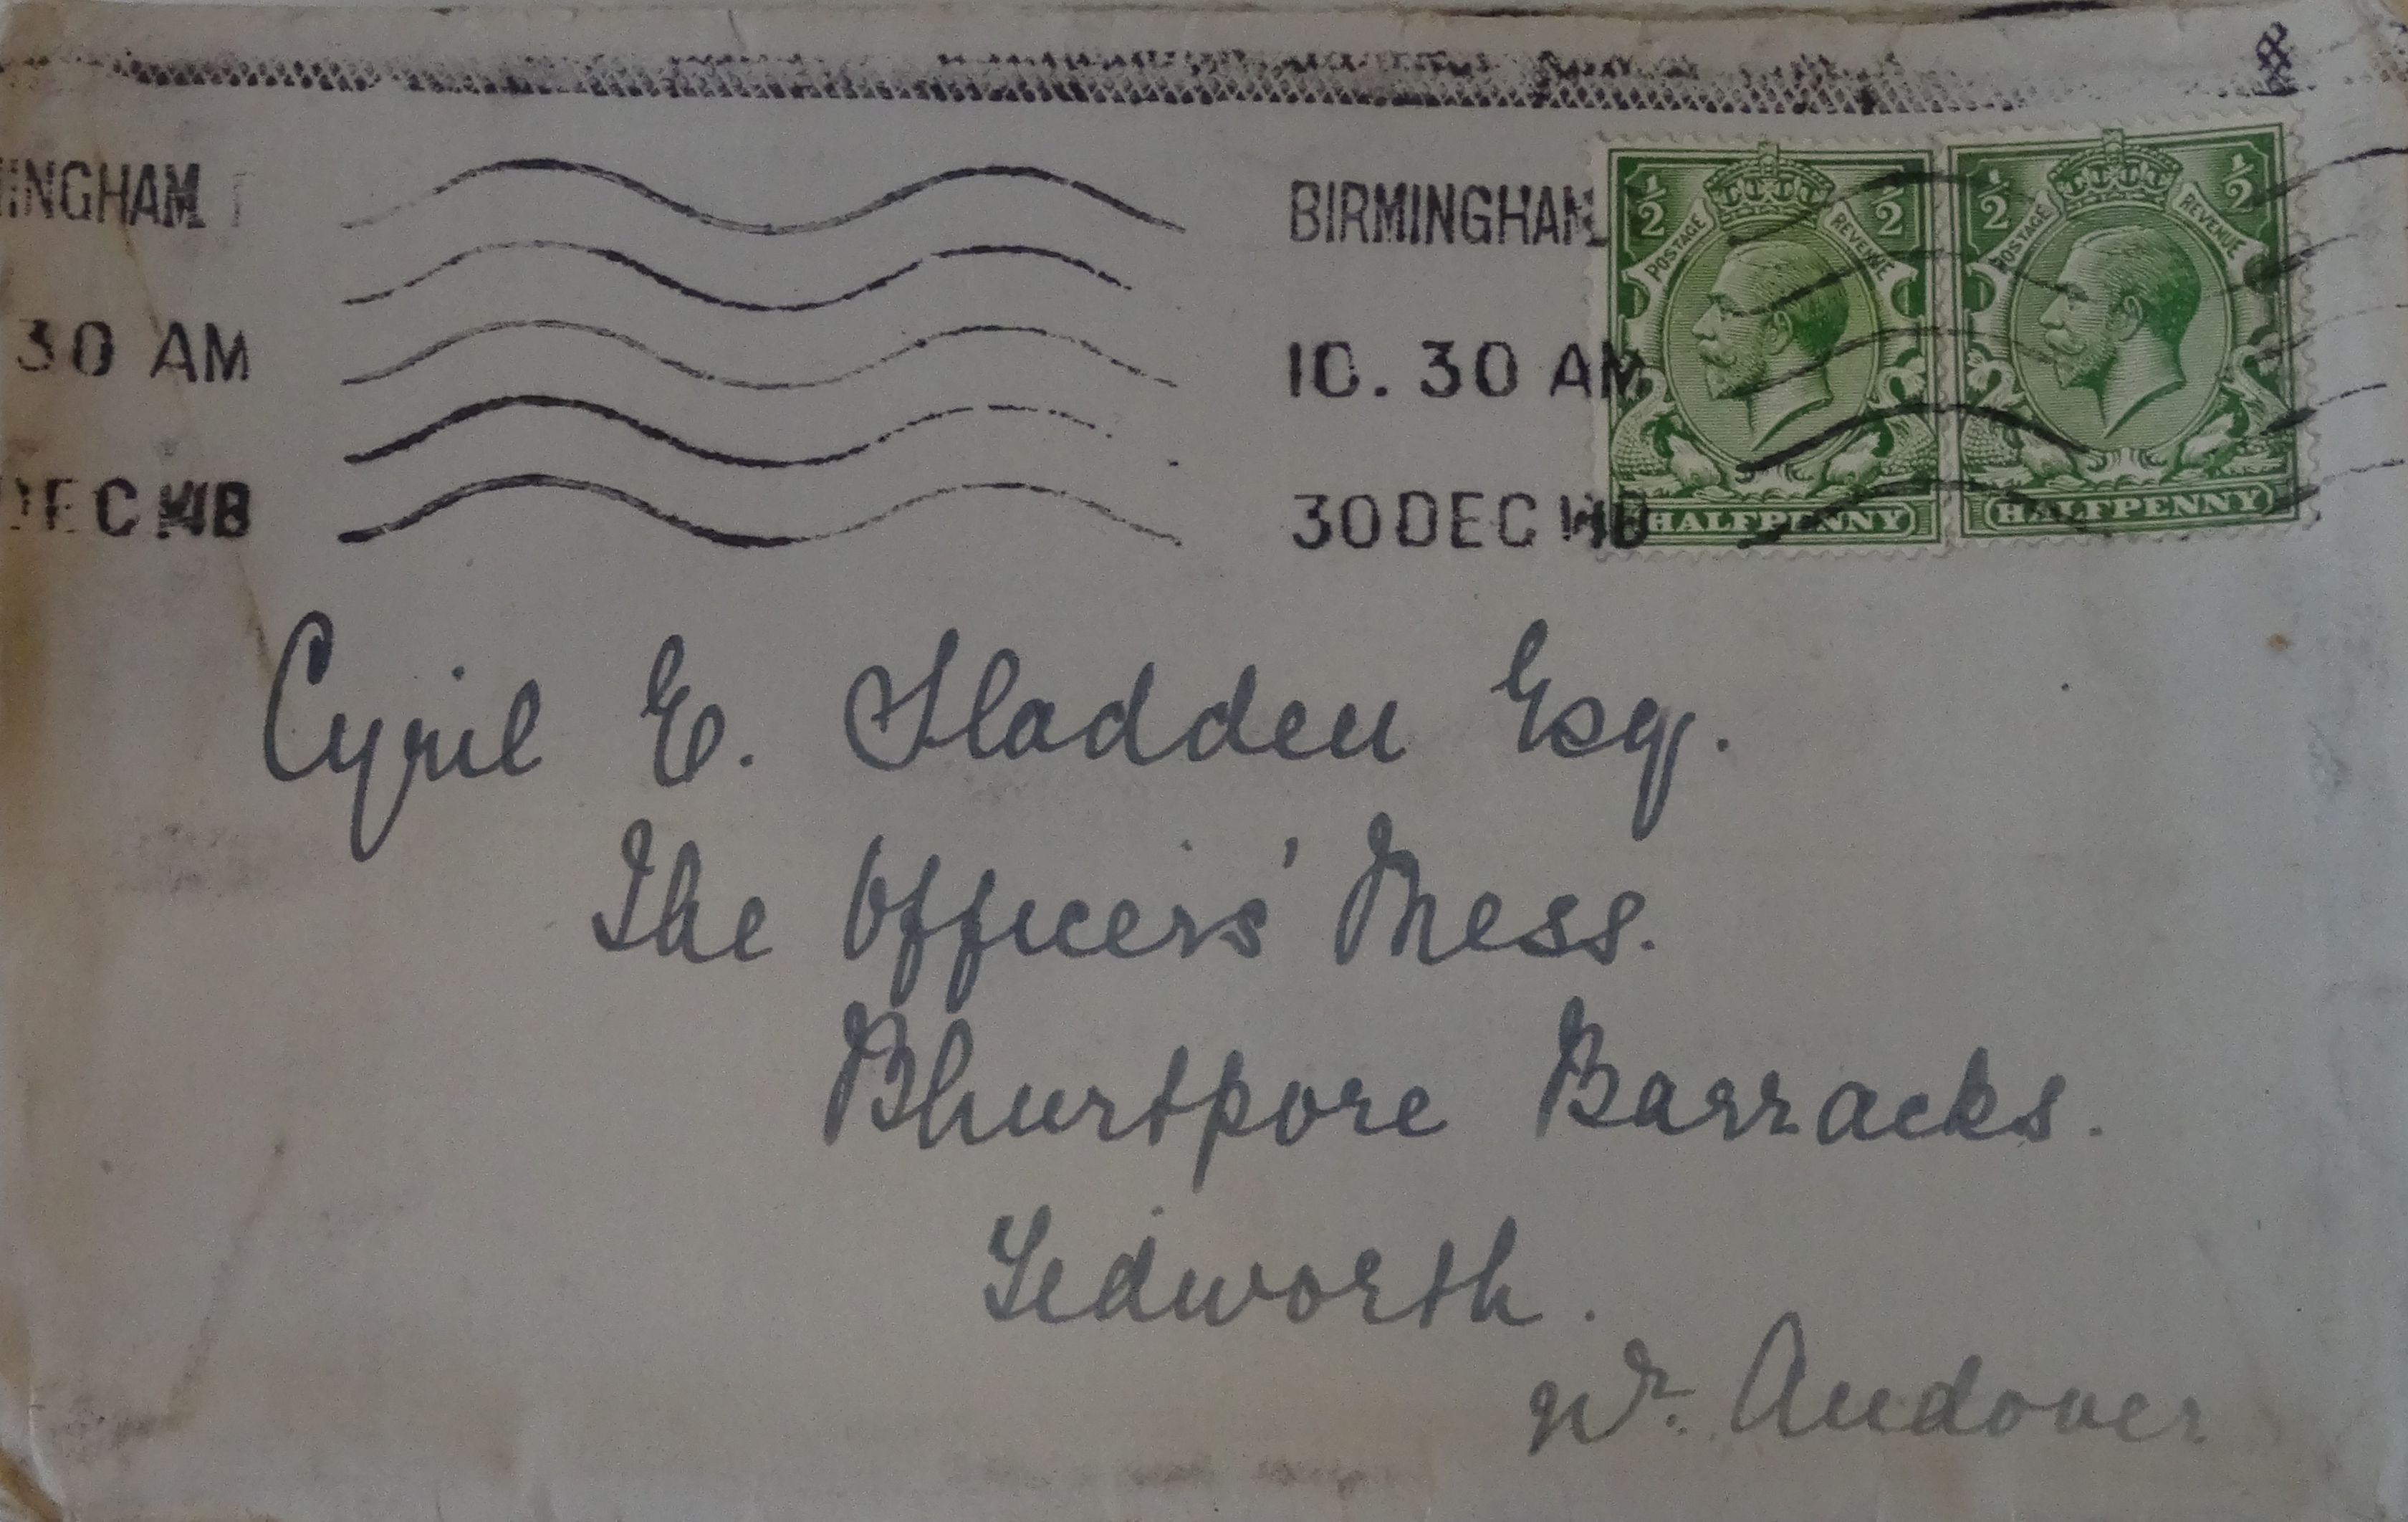 BIRMINGHAM
10. 30 AM
30 DEC
INGHAM
30 AM
DEC
½ ½
POSTAGE REVENUE
HALFPENNY
½ ½
POSTAGE REVENUE
HALFPENNY
Cyril E. Sladden Esq.
The Officers' Mess.
Bhurtpore Barracks.
Tedworth.
Nr. Andover